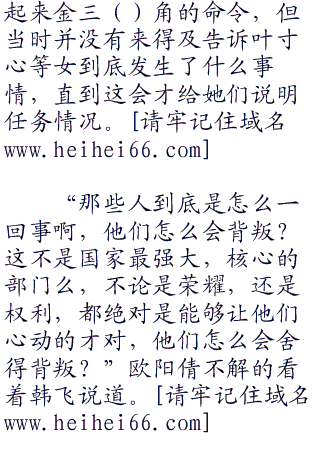 起来金三（）角的命令，但
当时并没有来得及告诉叶寸
心等女到底发生了什么事
情，直到这会才给她们说明
任务情况。[请牢记住域名
www.heihei66.com]
“那些人到底是怎么一
回事啊，他们怎么会背叛？
这不是国家最强大，核心的
部门么，不论是荣耀，还是
权利，都绝对是能够让他们
心动的才对，他们怎么会舍
得背叛？”欧阳倩不解的看
着韩飞说道。[请牢记住域名
www.heihei66.com]